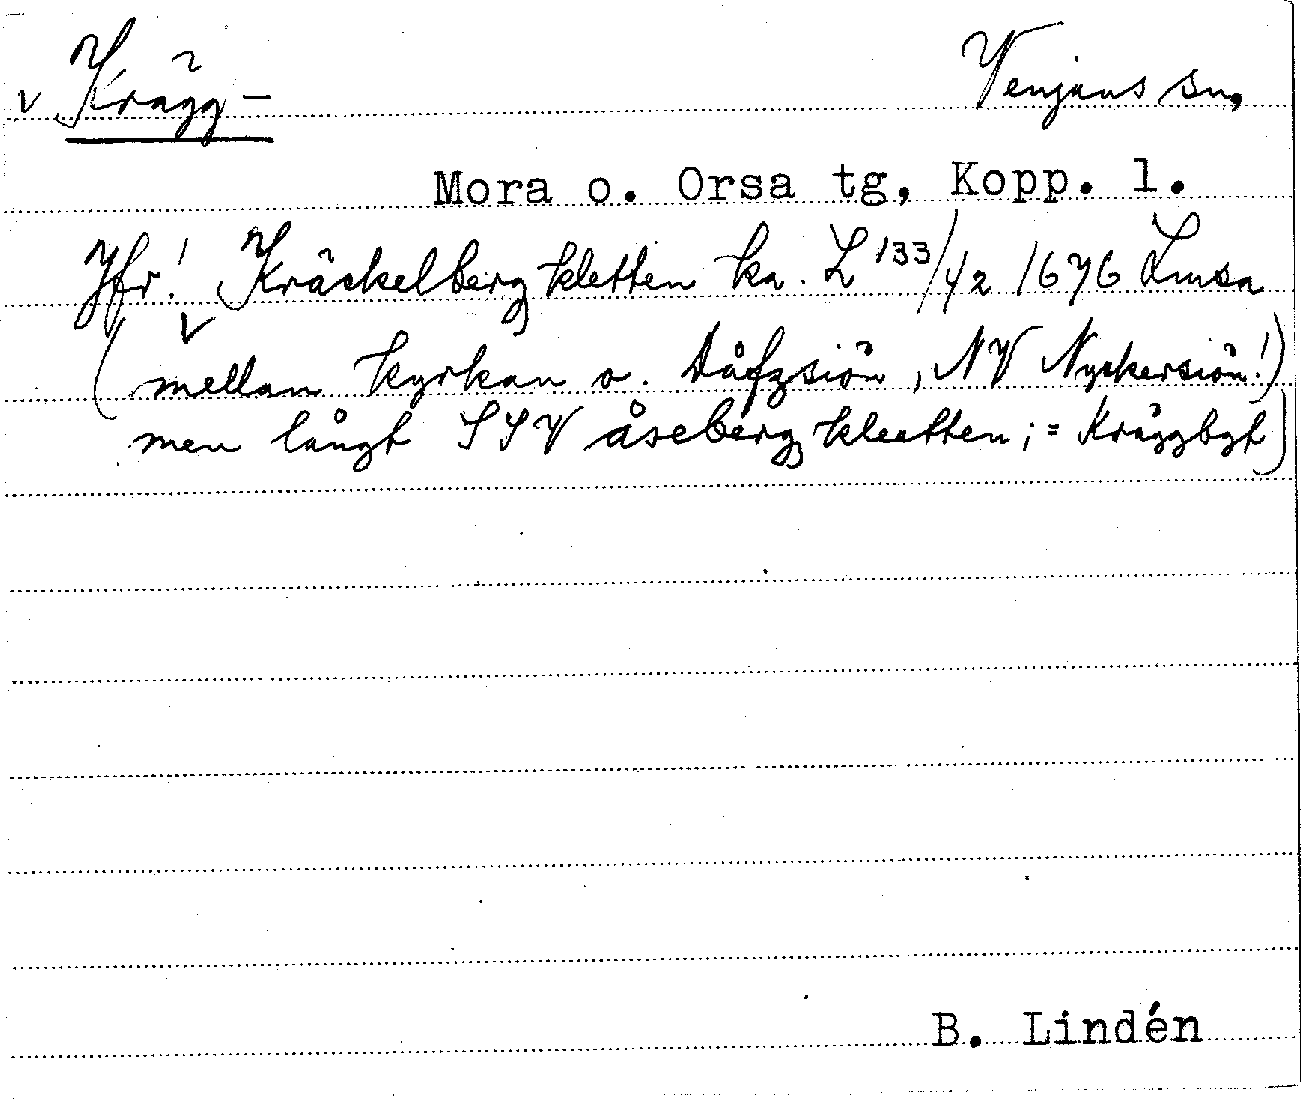 v Krägg- Venjans sn,
Mora o. Orsa tg, Kopp. l.
Jfr! Kräckelberg kletten ka. L 133/42 1676 Limsa
v
(mellan kyrkan o. Dåfzsiön, NV Nyckersiön!)
men långt SSV åseberg kleetten; = Kräggbgt)
B. Lindén